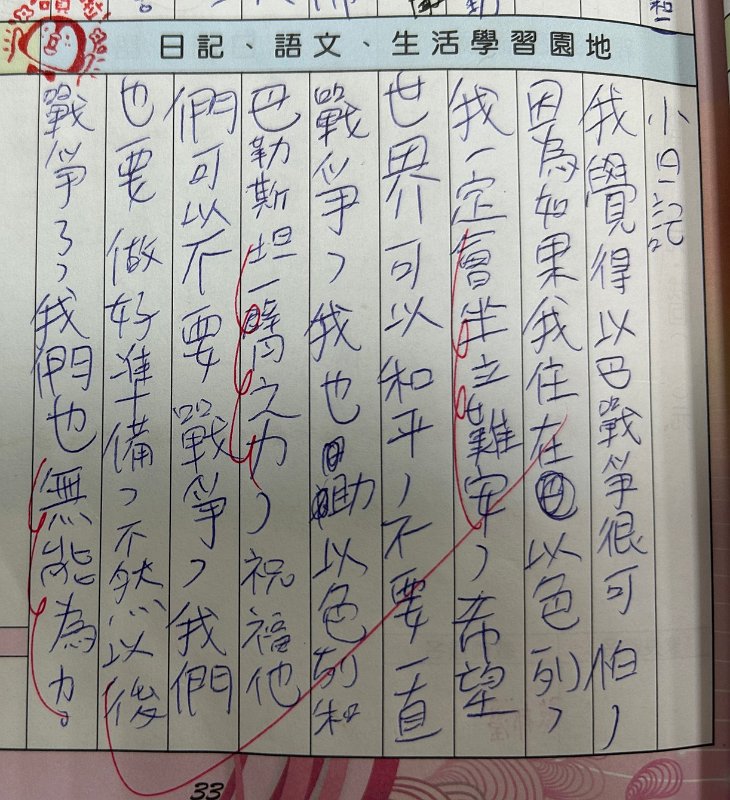 日記、語文、生活學習園地
小日記
我覺得以巴戰爭很可怕，
因為如果我住在以色列，
我一定會坐立難安，希望
世界可以和平，不要一直
戰爭，我也助以色列和
巴勒斯坦一臂之力，祝福他
們可以不要戰爭，我們
也要做好準備，不然以後
戰爭了，我們也無能為力。
33